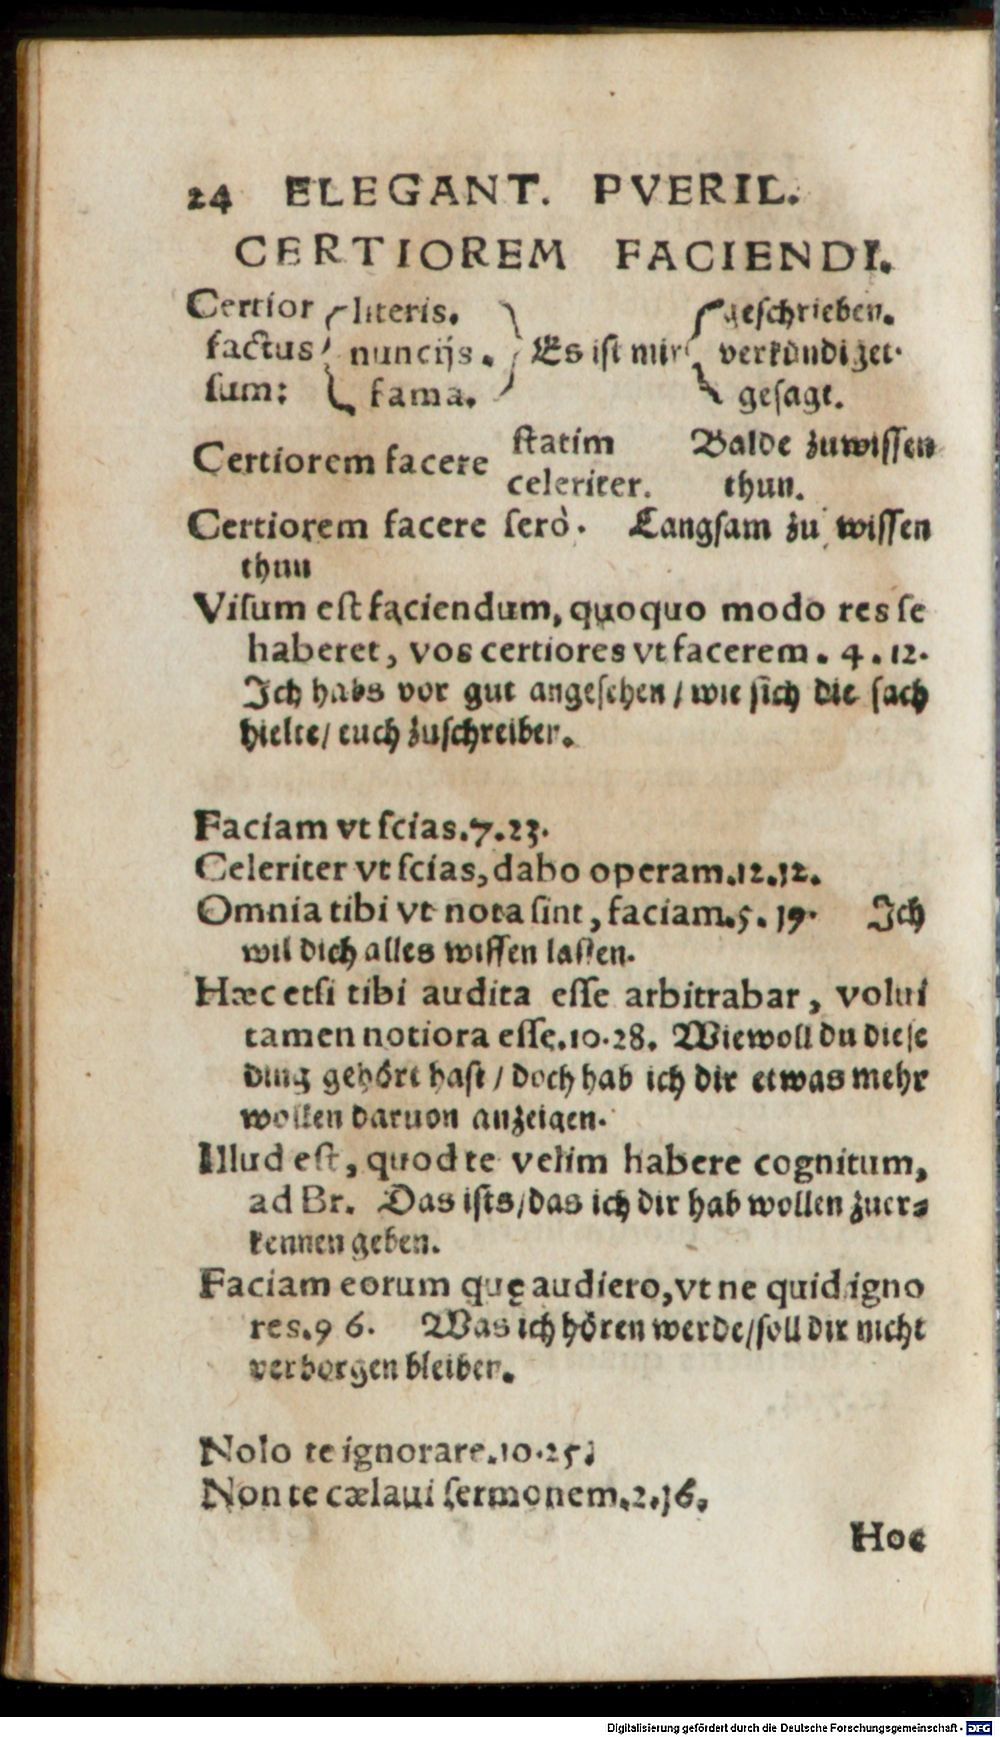 24 ELEGANT. PVERIL.
CERTIOREM FACIENDI.
Certior literis. geſchrieben.
factus nuncijs. Es iſt mir verkündiget.
ſum: fama. geſagt.
Certiorem facere ſtatim Balde zuwiſſen
celeriter. thun.
Certiorem facere ſerò. Langſam zu wiſſen
thun
Viſum eſt faciendum, quoquo modo res ſe
haberet, vos certiores vt facerem. 4. 12.
Ich habs vor gut angeſehen / wie ſich die ſach
hielte / euch zuſchreiben.
Faciam vt ſcias. 7. 23.
Celeriter vt ſcias, dabo operam. 12. 12.
Omnia tibi vt nota ſint, faciam. 5. 19. Ich
wil dich alles wiſſen laſſen.
Hæc etſi tibi audita eſſe arbitrabar, volui
tamen notiora eſſe. 10. 28. Wiewoll du dieſe
ding gehört haſt / doch hab ich dir etwas mehr
wollen daruon anzeigen.
Illud eſt, quod te velim habere cognitum,
ad Br. Das iſts / das ich dir hab wollen zuer⸗
kennen geben.
Faciam eorum quę audiero, vt ne quid igno
res. 9 6. Was ich hören werde / ſoll dir nicht
verborgen bleiben.
Nolo te ignorare. 10. 25.
Non te cælaui ſermonem. 2. 16.
Hoc
Digitalisierung gefördert durch die Deutsche Forschungsgemeinschaft - DFG